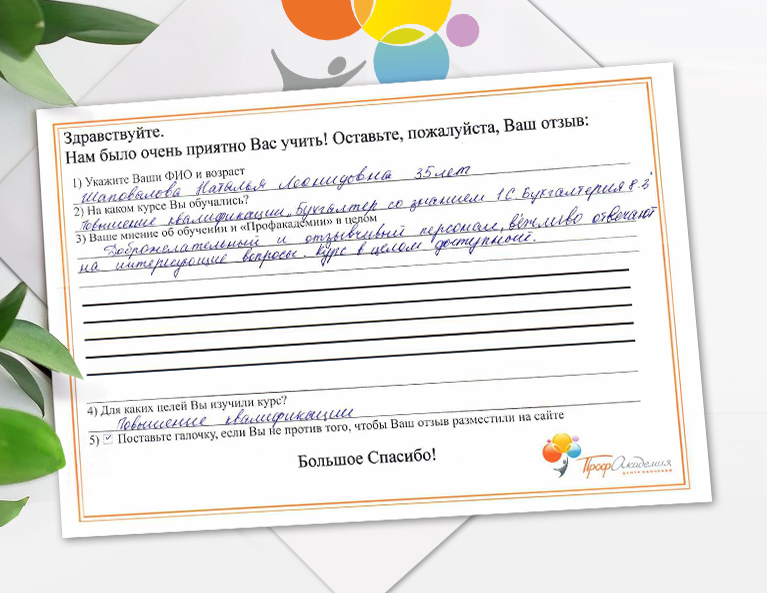 Здравствуйте.
Нам было очень приятно Вас учить! Оставьте, пожалуйста, Ваш отзыв:
1) Укажите Ваши ФИО и возраст
Шаповалова Наталья Леонидовна 35 лет
2) На каком курсе Вы обучались?
Повышение квалификации „Бухгалтер со знанием 1С.Бухгалтерия 8.3"
3) Ваше мнение об обучении и «Профакадемии» в целом
Доброжелательный и отзывчивый персонал, вежливо отвечают
на интересующие вопросы. Курс в целом доступный.
4) Для каких целей Вы изучили курс?
Повышение квалификации
5) ✓ Поставьте галочку, если Вы не против того, чтобы Ваш отзыв разместили на сайте
Большое Спасибо!
ПрофАкадемия
ЦЕНТР ОБУЧЕНИЯ